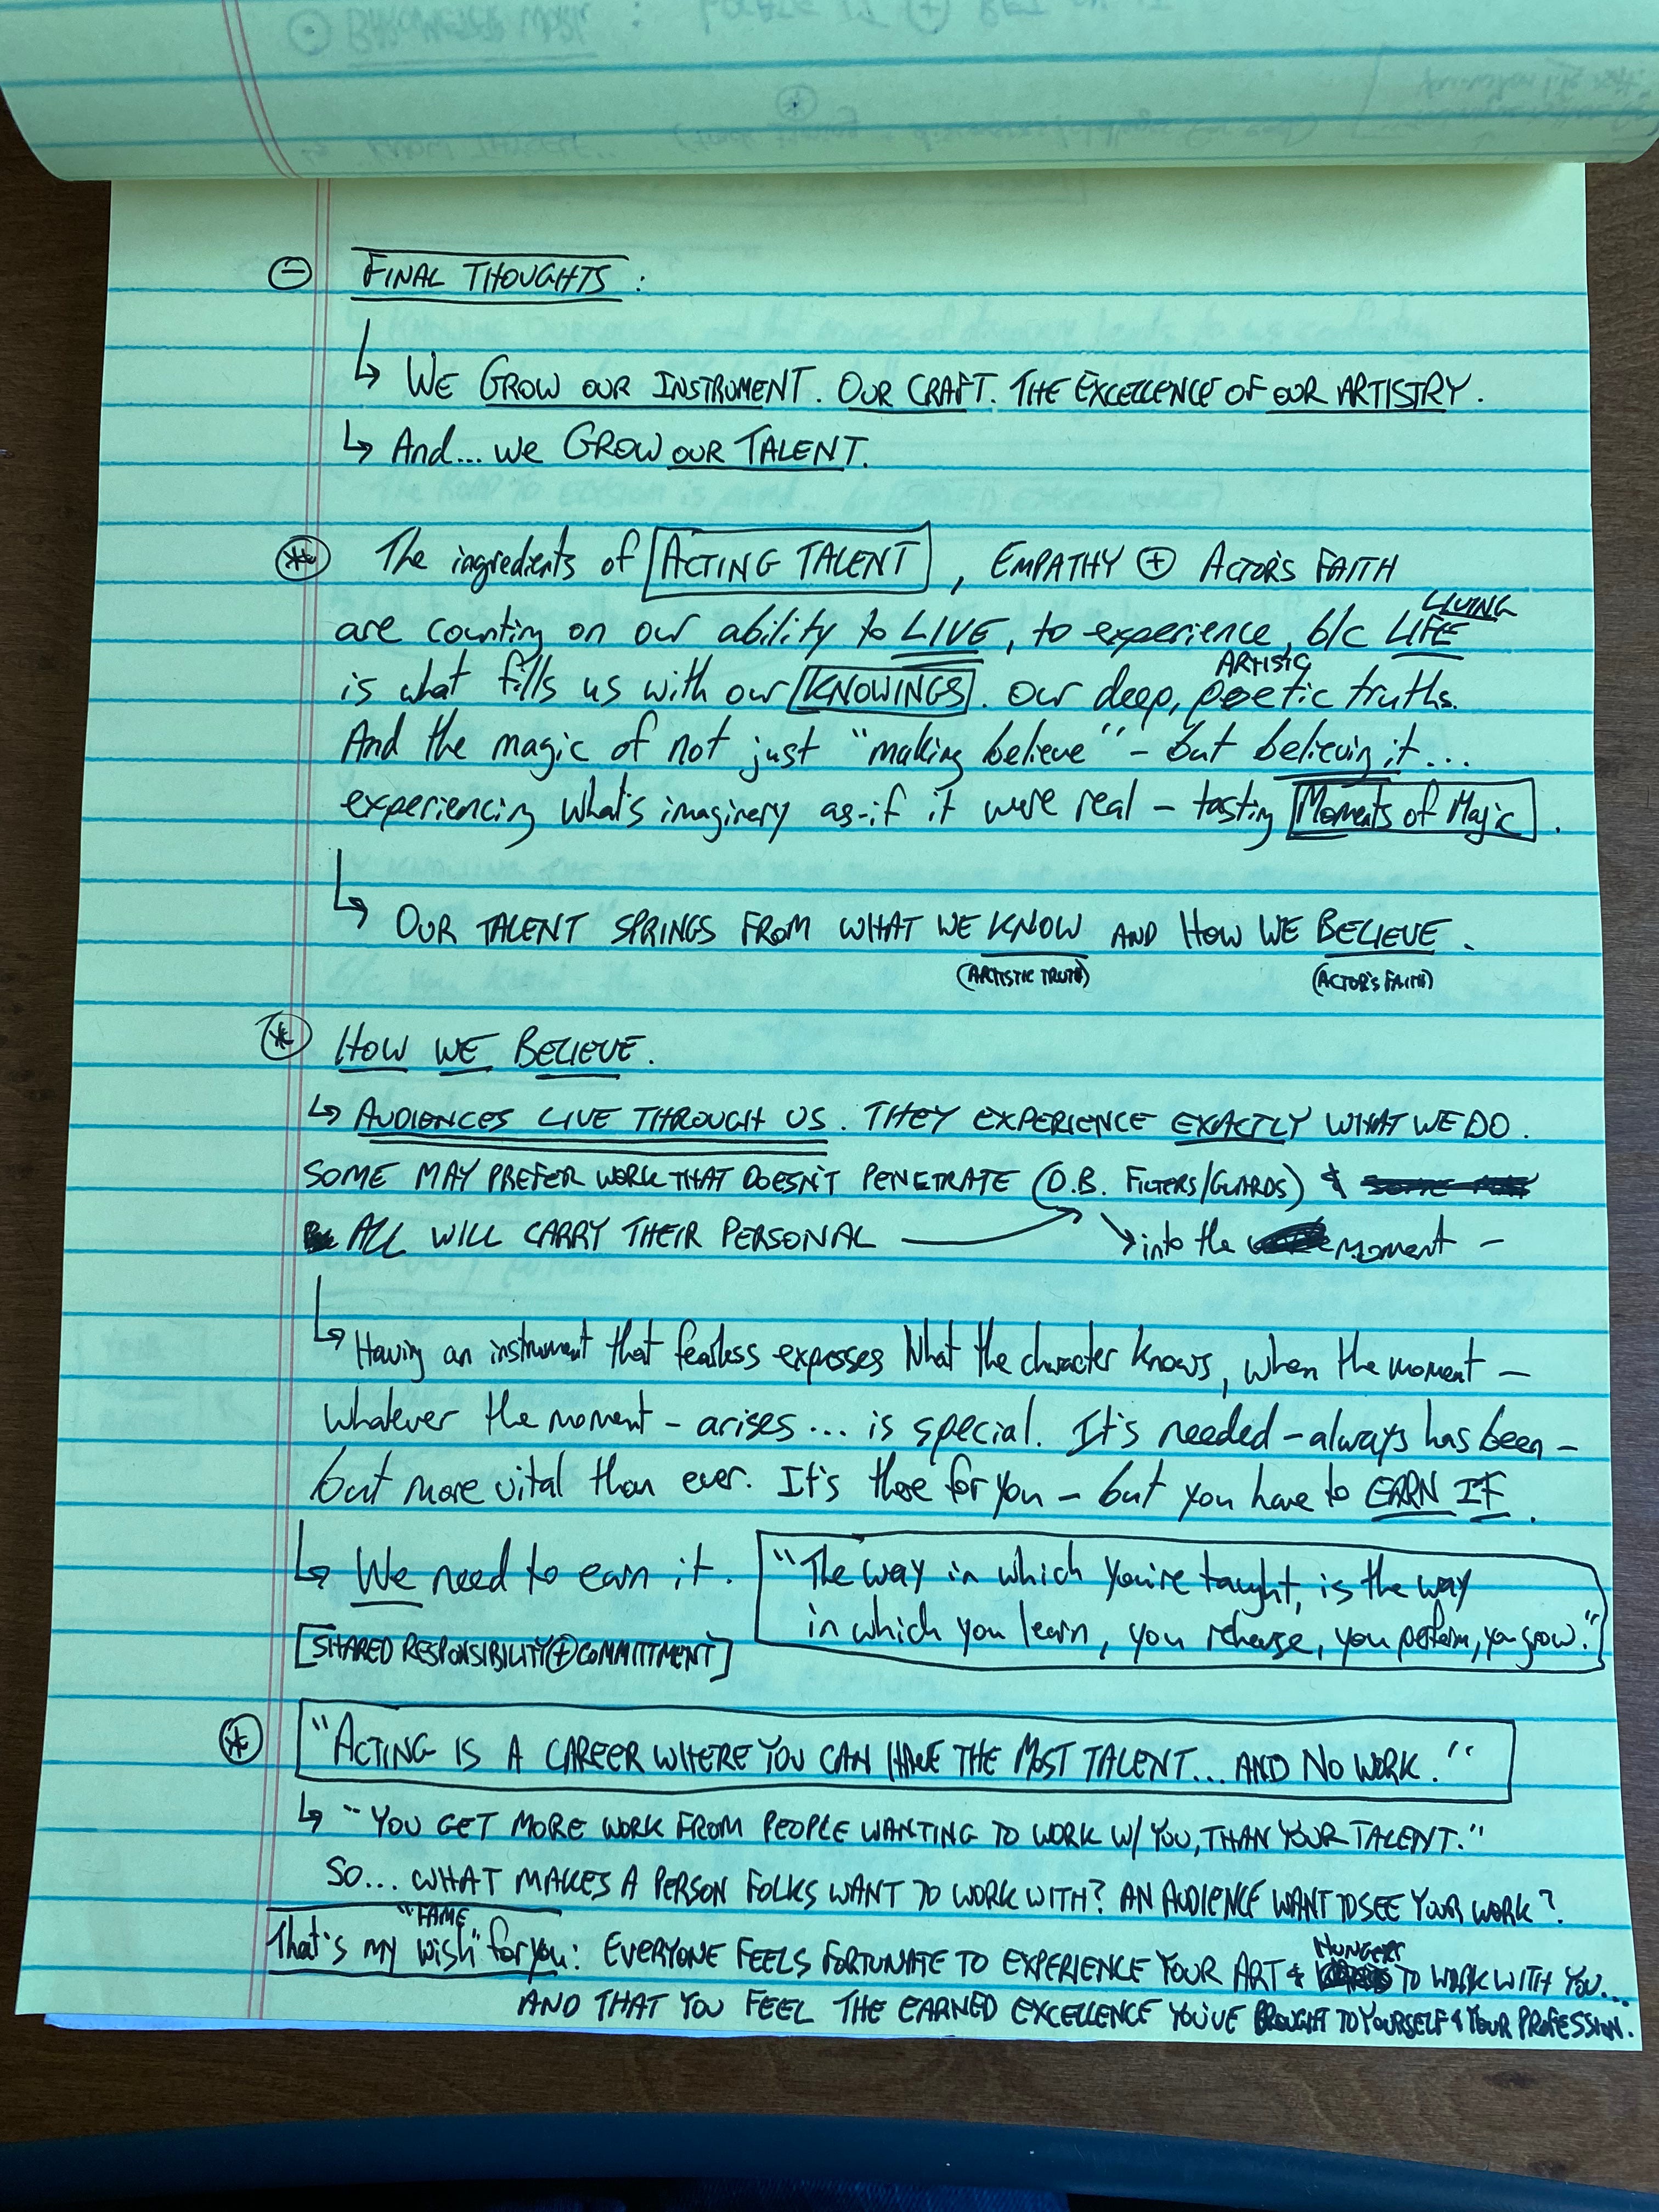 ⊖ FINAL THOUGHTS :
↳ WE GROW OUR INSTRUMENT. OUR CRAFT. THE EXCELLENCE OF OUR ARTISTRY.
↳ And... we GROW OUR TALENT.
The ingredients of ACTING TALENT, EMPATHY ⊕ ACTOR'S FAITH
LIVING
are counting on our ability to LIVE, to experience, b/c LIFE
ARTISTIC
is what fills us with our KNOWINGS. Our deep, poetic truths.
And the magic of not just "making believe" - but believing it...
experiencing what's imaginery as-if it were real - tasting Moments of Magic.
↳ OUR TALENT SPRINGS FROM WHAT WE KNOW AND HOW WE BELIEVE.
(ARTISTIC TRUTH) (ACTOR'S FAITH)
* HOW WE BELIEVE.
↳ AUDIENCES LIVE THROUGH US. THEY EXPERIENCE EXACTLY WHAT WE DO.
SOME MAY PREFER WORK THAT DOESN'T PENETRATE (O.B. FILTERS/GUARDS) &
ALL WILL CARRY THEIR PERSONAL → ↘ into the moment -
↳ Having an instrument that fearless expresses what the character knows, when the moment -
whatever the moment - arises... is special. It's needed - always has been -
but more vital than ever. It's there for you - but you have to EARN IT.
↳ We need to earn it. "The way in which you're taught, is the way
in which you learn, you rehearse, you perform, you grow."
[SHARED RESPONSIBILITY ⊕ COMMITTMENT]
* "ACTING IS A CAREER WHERE YOU CAN HAVE THE MOST TALENT... AND NO WORK."
↳ "YOU GET MORE WORK FROM PEOPLE WANTING TO WORK W/ YOU, THAN YOUR TALENT."
SO... WHAT MAKES A PERSON FOLKS WANT TO WORK WITH? AN AUDIENCE WANT TO SEE YOUR WORK?
"FAME
That's my wish" for you: EVERYONE FEELS FORTUNATE TO EXPERIENCE YOUR ART & HUNGERS TO WORK WITH YOU...
AND THAT YOU FEEL THE EARNED EXCELLENCE YOU'VE BROUGHT TO YOURSELF & YOUR PROFESSION.